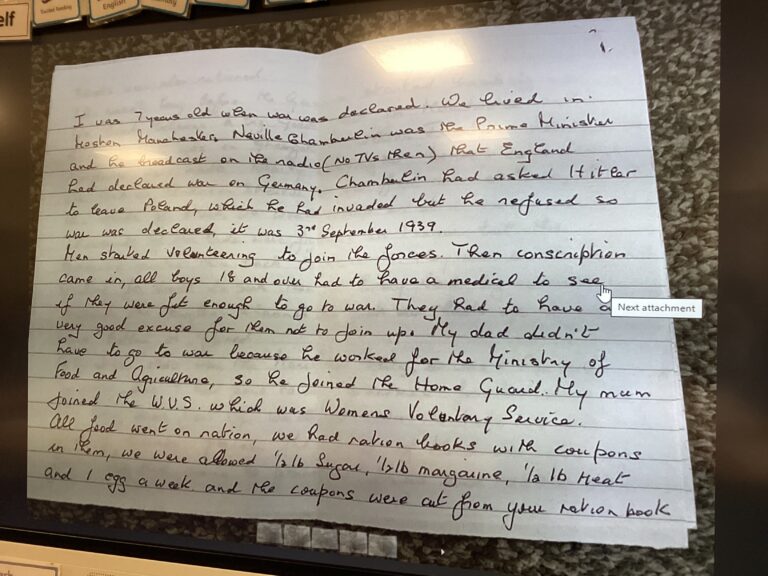 elf
Guided Reading
English
1.
I was 7 years old when war was declared. We lived in
Moston Manchester, Neville Chamberlin was the Prime Minister
and he broadcast on the radio (No TVs then) that England
had declared war on Germany. Chamberlin had asked Hitler
to leave Poland, which he had invaded but he refused so
war was declared, it was 3rd September 1939.
Men started volunteering to join the forces. Then conscription
came in, all boys 18 and over had to have a medical to see
if they were fit enough to go to war. They had to have a
Next attachment
very good excuse for them not to join up. My dad didn't
have to go to war because he worked for the Ministry of
Food and Agriculture, so he joined the Home Guard. My mum
joined the W.V.S. which was Womens Voluntary Service.
All food went on ration, we had ration books with coupons
in them, we were allowed ½ lb Sugar, ½ lb margarine, ½ lb Meat
and 1 egg a week and the coupons were cut from your ration book